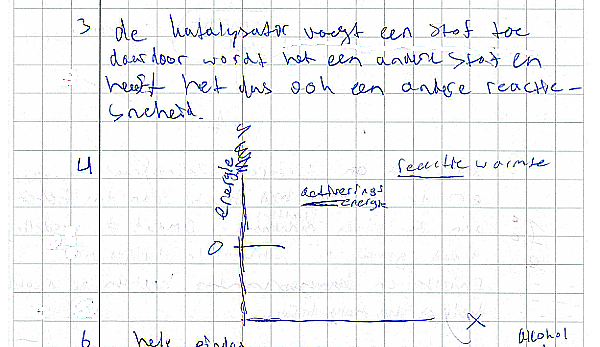 3 de katalysator voegt een stof toe
daardoor wordt het een andere stof en
heeft het dus ook een andere reactie-
snelheid.
4 energie reactie warmte
activerings
energie
0
X
6 alcohol